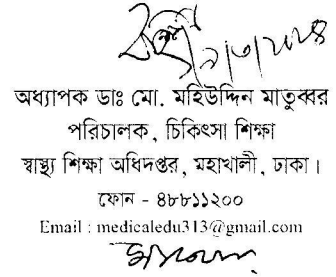 ৯/৩/২০২৪
অধ্যাপক ডাঃ মো. মহিউদ্দিন মাতুব্বর
পরিচালক, চিকিৎসা শিক্ষা
স্বাস্থ্য শিক্ষা অধিদপ্তর, মহাখালী, ঢাকা।
ফোন - ৪৮৮১১২০০
Email : medicaledu313@gmail.com